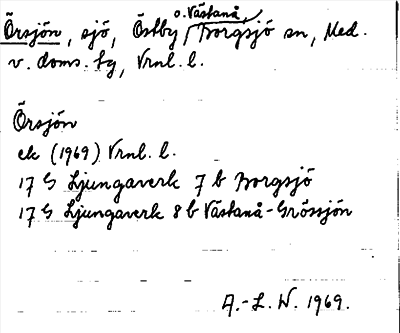 Örsjön, sjö, Östby o. Västanå, Borgsjö sn, Med.
v. doms. tg, Vrnl. l.
Örsjön
ek (1969) Vrnl. l.
17 G Ljungaverk 7 b Borgsjö
17 G Ljungaverk 8 b Västanå-Grössjön
A.-L. W. 1969.